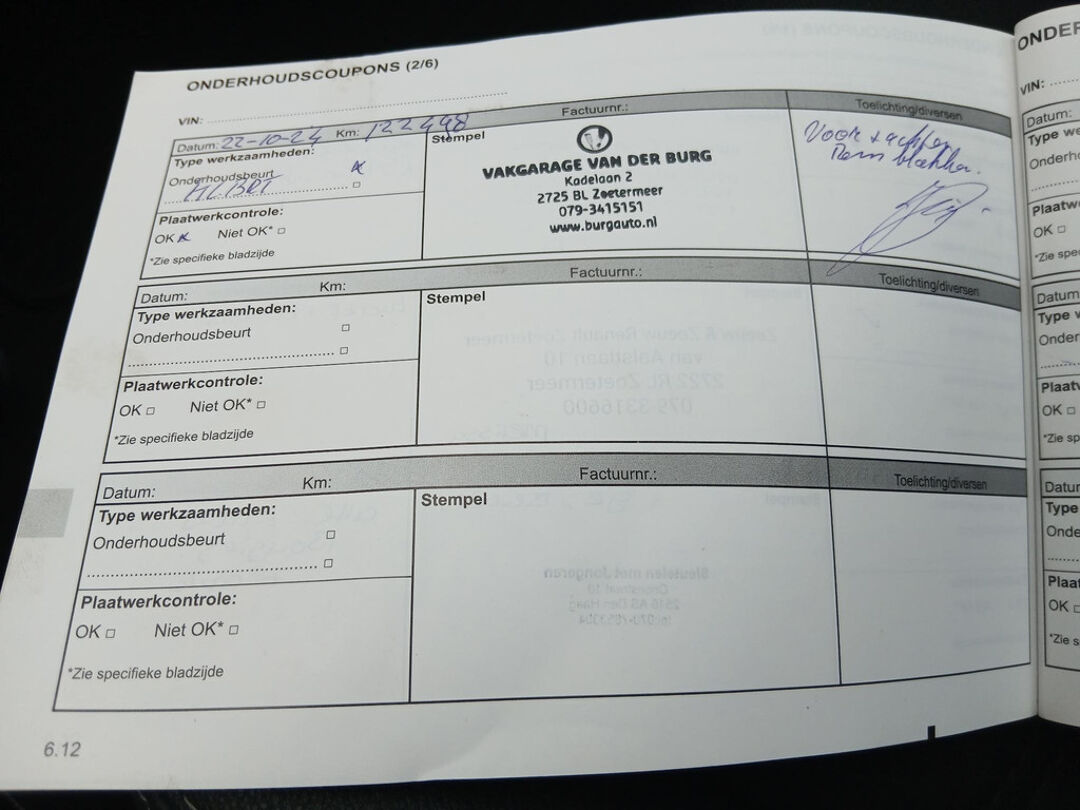 ONDERHOUDSCOUPONS (2/6)
VIN:
Datum: 22-10-24 Km: 122498 Factuurnr.: Toelichting/diversen
Type werkzaamheden:
Onderhoudsbeurt
Plaatwerkcontrole:
OK Niet OK*
*Zie specifieke bladzijde
Stempel
VAKGARAGE VAN DER BURG
Kadelaan 2
2725 BL Zoetermeer
079-3415151
www.burgauto.nl
Voor + achter
Rem blokken.
Datum: Km: Factuurnr.: Toelichting/diversen
Type werkzaamheden:
Onderhoudsbeurt
Plaatwerkcontrole:
OK Niet OK*
*Zie specifieke bladzijde
Stempel
Datum: Km: Factuurnr.: Toelichting/diversen
Type werkzaamheden:
Onderhoudsbeurt
Plaatwerkcontrole:
OK Niet OK*
*Zie specifieke bladzijde
Stempel
6.12
ONDER
VIN:
Datum:
Type we
Onderho
Plaatwe
OK
*Zie spe
Datum
Type w
Onder
Plaatv
OK
*Zie sp
Datur
Type
Onde
Plaa
OK
*Zie s